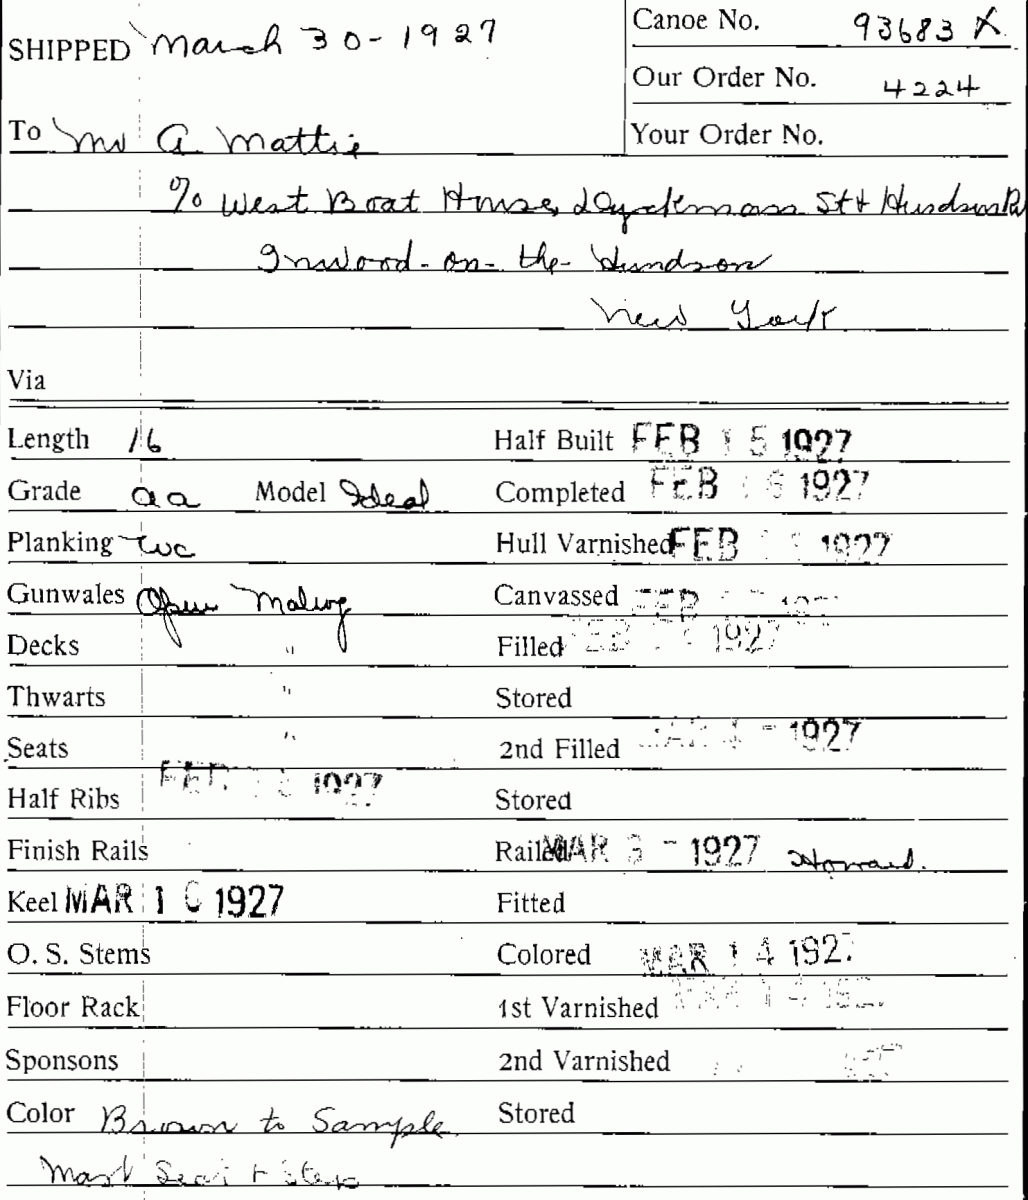 SHIPPED March 30-1927
Canoe No. 93683 X
Our Order No. 4224
To Mr A. Mattie
Your Order No.
% West Boat House, Dyckman St & Hudson
Inwood-on-the-Hundson
New York
Via
Length 16 Half Built FEB 15 1927
Grade aa Model Ideal Completed FEB 16 1927
Planking WC Hull Varnished FEB 1927
Gunwales Open Mahog Canvassed FEB
Decks " Filled FEB 1927
Thwarts " Stored
Seats " 2nd Filled MAR 1927
Half Ribs FEB 1927 Stored
Finish Rails Railed MAR 3 - 1927 Howard.
Keel MAR 1 1927 Fitted
O. S. Stems Colored MAR 14 1927
Floor Rack 1st Varnished MAR 14 192
Sponsons 2nd Varnished
Color Brown to Sample Stored
Mast Seat + Step